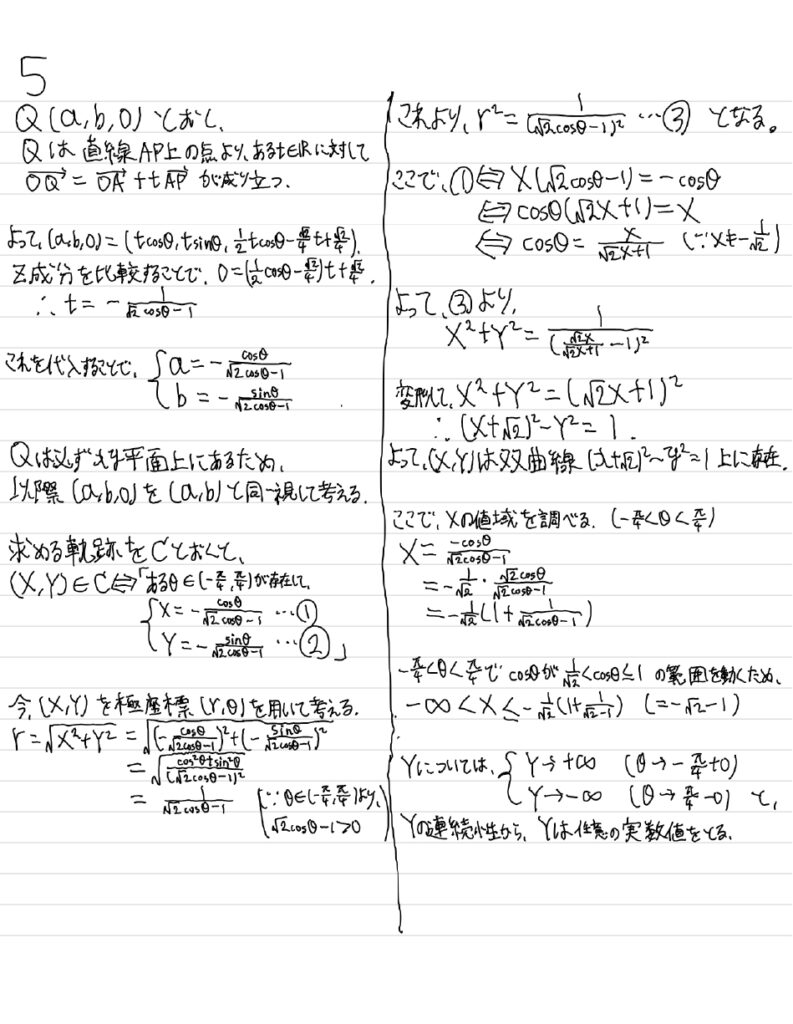 5
Q(a,b,0) とおく、
Qは直線AP上の点より、あるt∈ℝに対して
→OQ = →OA + t→AP が成り立つ.
よって、(a,b,0)=(tcosθ, tsinθ, 1/2 tcosθ - √2/4 t + √2/4).
z成分を比較することで、0=(1/2 cosθ - √2/4)t + √2/4.
∴ t = - 1/(√2cosθ-1)
これを代入することで、{ a = - cosθ/(√2cosθ-1)
b = - sinθ/(√2cosθ-1) .
Qは必ずxy平面上にあるため、
以降 (a,b,0) を (a,b) と同一視して考える.
求める軌跡をCとおくと、
(X,Y)∈C ⇔「あるθ∈(-π/4, π/4)が存在して、
{ X = - cosθ/(√2cosθ-1) …①
Y = - sinθ/(√2cosθ-1) …② 」
今、(X,Y) を極座標 (r,θ) を用いて考える.
r = √(X²+Y²) = √((-cosθ/(√2cosθ-1))²+(-sinθ/(√2cosθ-1))²)
= √((cos²θ+sin²θ)/(√2cosθ-1)²)
= 1/(√2cosθ-1) (∵ θ∈(-π/4, π/4)より、
√2cosθ-1>0)
これより、r² = 1/(√2cosθ-1)² …③ となる。
ここで、① ⇔ X(√2cosθ-1) = -cosθ
⇔ cosθ(√2X+1) = X
⇔ cosθ = X/(√2X+1) (∵ X≠-1/√2)
よって、③より、
X²+Y² = 1/(√2X/(√2X+1) -1)²
変形して、X²+Y² = (√2X+1)²
∴ (X+√2)²-Y² = 1.
よって、(X,Y)は双曲線 (x+√2)²-y²=1 上に存在.
ここで、Xの値域を調べる. (-π/4<θ<π/4)
X = -cosθ/(√2cosθ-1)
= -1/√2 · √2cosθ/(√2cosθ-1)
= -1/√2 (1+ 1/(√2cosθ-1))
-π/4<θ<π/4 で cosθが 1/√2<cosθ≤1 の範囲を動くため、
-∞ < X ≤ -1/√2 (1+ 1/(√2-1)) (=-√2-1)
Yについては、{ Y→+∞ (θ→-π/4+0)
Y→-∞ (θ→π/4-0) と、
Yの連続性から、Yは任意の実数値をとる.